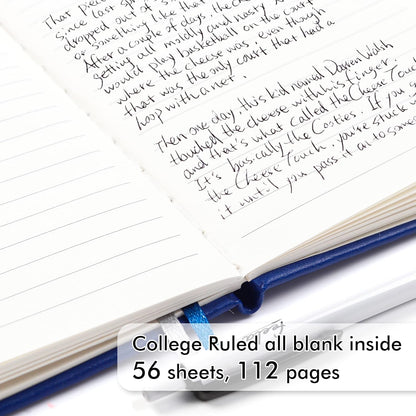 That piece
since last sp
dropped out of s
or something like that
After a couple of days the ch
getting all moldy and nasty. N
would play basketball on the court
where the cheese was, even though
that was the only court that had a
hoop with a net.
Then one day, this kid named Darren Walsh
touched the cheese with his finger,
and that's what called the Cheese Touch
It's basically the Cooties. If you g
the Cheese Touch, you're stuck
it until you pass it on to some
College Ruled all blank inside
56 sheets, 112 pages